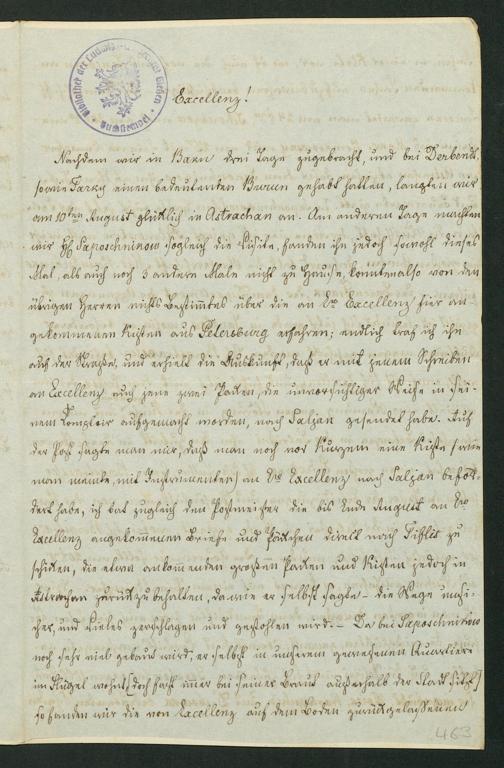 Bibliothek der Ludwigs-Universität Gießen
Buchstempel
Excellenz!
Nachdem wir in Baku drei Tage zugebracht, und bei Derbend,
sowie Tarky einen bedeutenden Burun gehabt hatten, langten wir
am 10ten August glücklich in Astrachan an. Am anderen Tage machten
wir H Saposchninow sogleich die Visite, fanden ihn jedoch sowohl dieses
Mal, als auch noch 3 andere Male nicht zu Hause, konnten also von den
übrigen Herren nichts Bestimmtes über die an Ew Excellenz hier an-
gekommenen Kisten aus Petersburg erfahren; endlich traf ich ihn
auf der Straße, und erhielt die Auskunft, daß er mit jenem Schreiben
an Excellenz auch jene zwei Paken, die unvorsichtiger Weise in sei-
nem Comptoir aufgemacht worden, nach Saljan gesendet habe. Auf
der Post sagte man mir, daß man noch vor Kurzem eine Kiste (wie
man meinte, mit Instrumenten) an Ew Excellenz nach Saljan beför-
dert habe, ich bat zugleich den Postmeister die bis Ende August an Ew
Excellenz angekommenen Briefe und Päckchen direkt nach Tiflis zu
schicken, die etwa ankommenden großen Paken und Kisten jedoch in
Astrachan zurückzubehalten, da wie er selbst sagte – die Wege unsi-
cher, und Vieles zerschlagen und gestohlen wird. – Da bei Saposchnikow
noch sehr viel gebaut wird, er selbst in unserem gewesenen Quartiere
im Flügel wohnt (doch fast immer bei seiner Braut außerhalb der Stadt sitzt)
so fanden wir die von Excellenz auf dem Boden zurückgelassenen
463